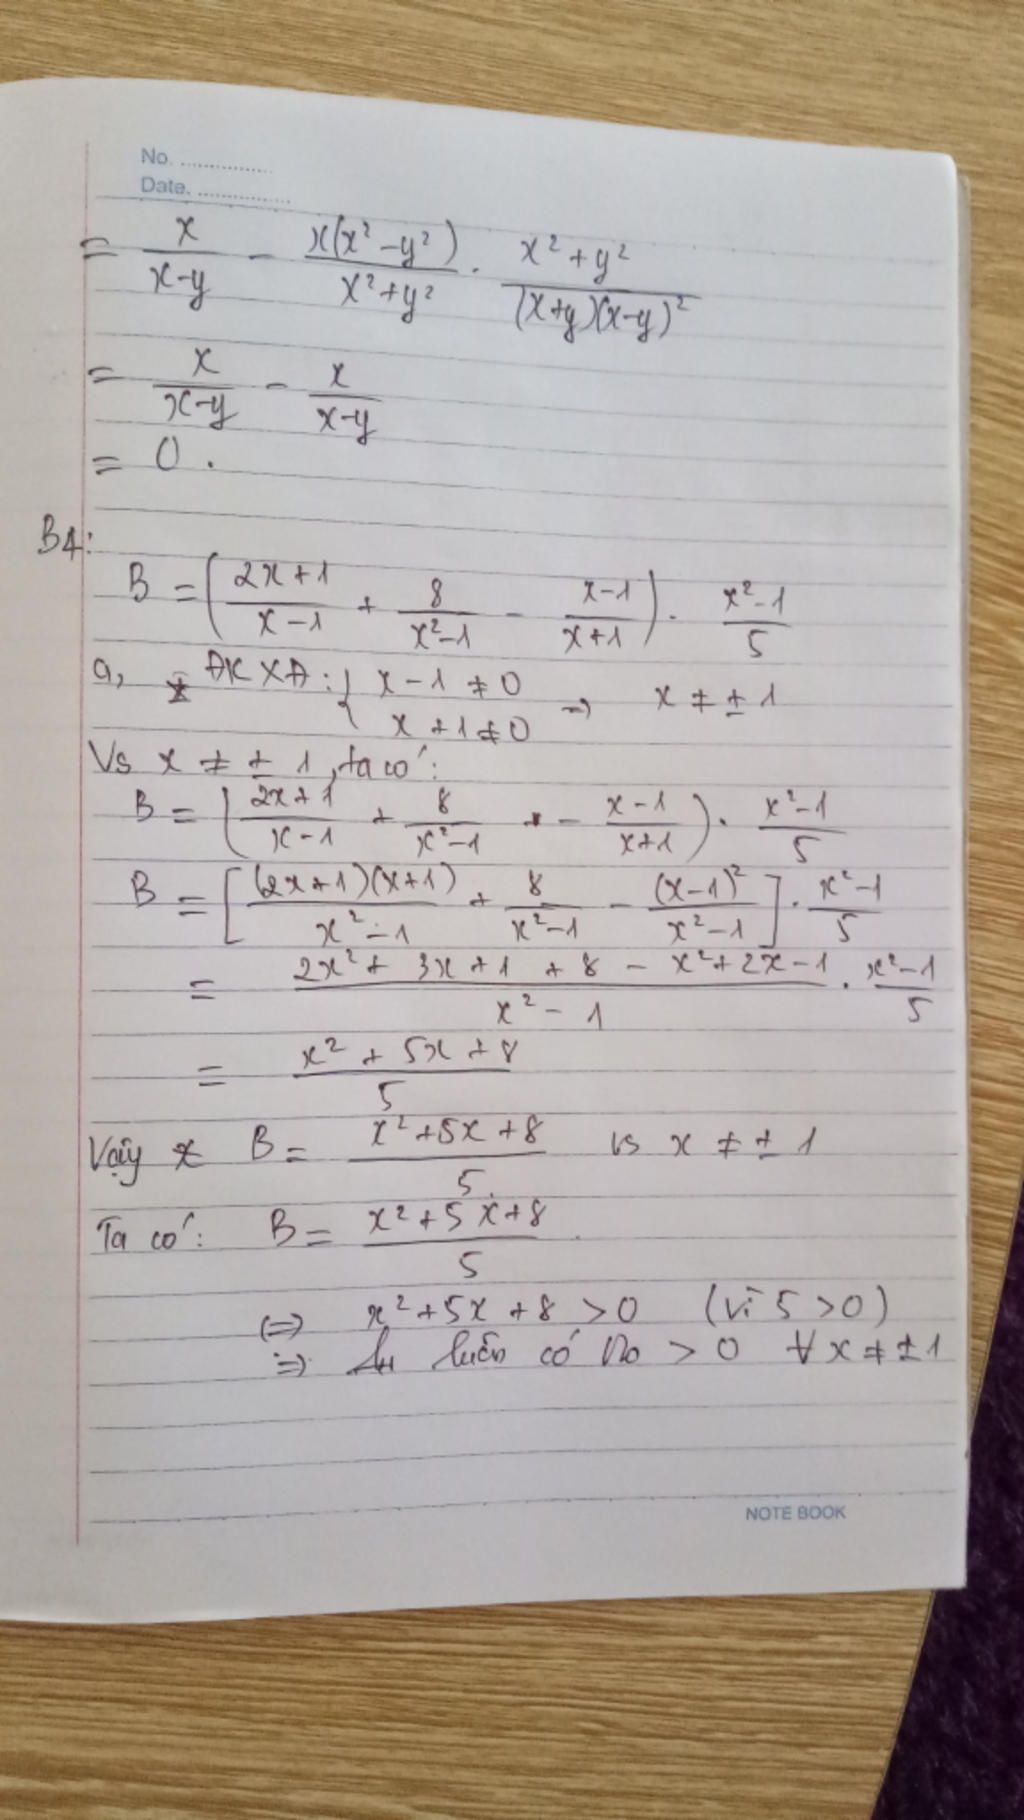 No. ..............
Date. ..............
= x/(x-y) - x(x²-y²)/(x²+y²) . (x²+y²)/((x+y)(x-y)²)
= x/(x-y) - x/(x-y)
= 0.
B4:
B = ((2x+1)/(x-1) + 8/(x²-1) - (x-1)/(x+1)) . (x²-1)/5
a, ĐKXĐ: { x-1 ≠ 0
x+1 ≠ 0 => x ≠ ±1
Vs x ≠ ±1, ta có:
B = ((2x+1)/(x-1) + 8/(x²-1) - (x-1)/(x+1)) . (x²-1)/5
B = [(2x+1)(x+1)/(x²-1) + 8/(x²-1) - (x-1)²/(x²-1)] . (x²-1)/5
= (2x² + 3x + 1 + 8 - x² + 2x - 1)/(x² - 1) . (x²-1)/5
= (x² + 5x + 8)/5
Vậy B = (x²+5x+8)/5 vs x ≠ ±1
Ta có: B = (x²+5x+8)/5
(=) x²+5x+8 > 0 (vì 5 > 0)
=> luôn có no > 0 ∀x ≠ ±1
NOTE BOOK